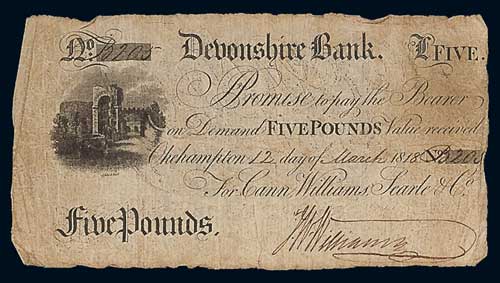 No. B203 Devonshire Bank. £FIVE.
Promise to pay the Bearer
on Demand FIVE POUNDS Value received
Okehampton 12 day of March 1818 No. B203
For Cann, Williams, Searle & Co.
Five Pounds.
Williams